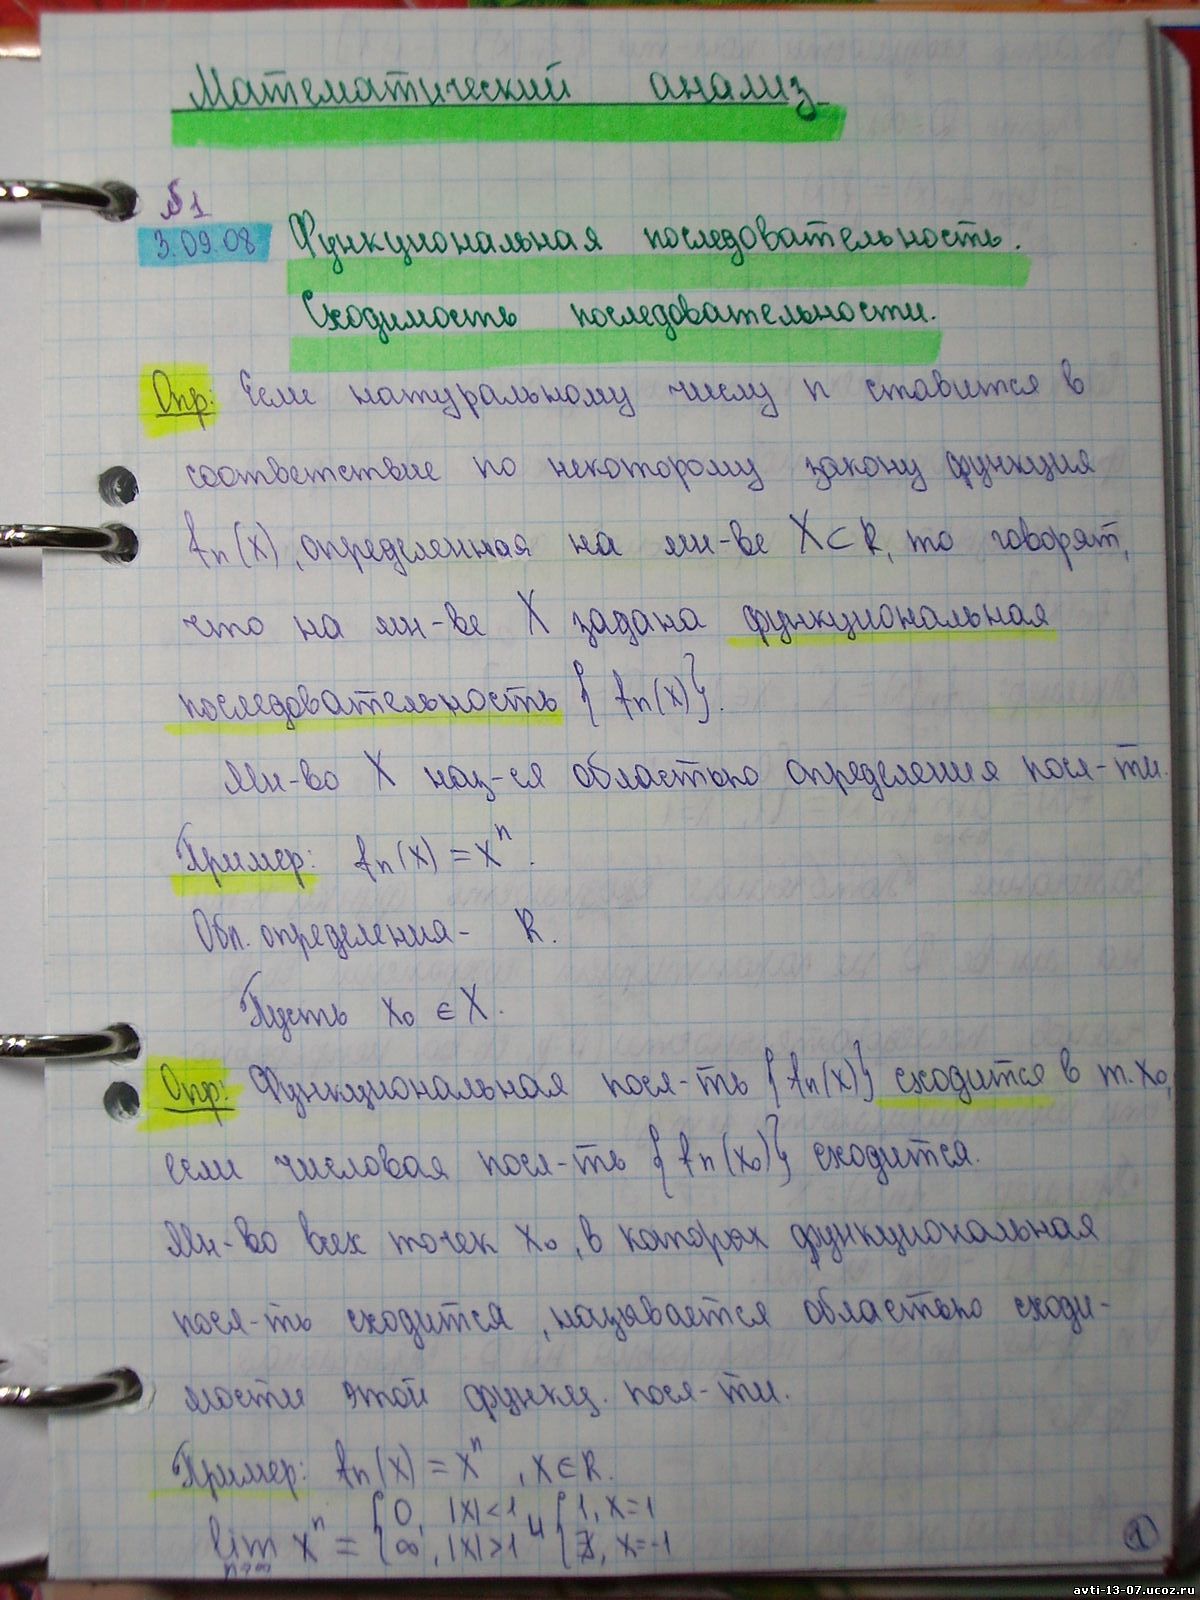 Математический анализ
§1
3.09.08 Функциональная последовательность.
Сходимость последовательности.
Опр: Если натуральному числу n ставится в
соответствие по некоторому закону функция
fn(x), определенная на мн-ве X⊂R, то говорят,
что на мн-ве X задана функциональная
последовательность {fn(x)}.
Мн-во X наз-ся областью определения посл-ти.
Пример: fn(x) = xⁿ.
Обл. определения - R.
Пусть x₀ ∈ X.
Опр: Функциональная посл-ть {fn(x)} сходится в т. x₀,
если числовая посл-ть {fn(x₀)} сходится.
Мн-во всех точек x₀, в которых функциональная
посл-ть сходится, называется областью сходи-
мости этой функц. посл-ти.
Пример: fn(x) = xⁿ, x∈R.
lim n→∞ xⁿ = { 0, |x|<1 ; ∞, |x|>1 и { 1, x=1 ; ∄, x=-1
1
avti-13-07.ucoz.ru